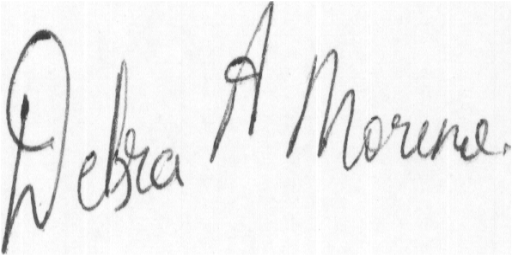 Debra A Moreno